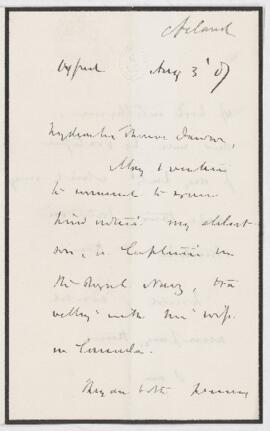 Acland
Oxford Aug 3 '87
My dear Sir Thomas
May I venture
to commend to your
kind notice my eldest
son, a Captain in
the Royal Navy, tra
velling with his wife
in Canada.
They are both